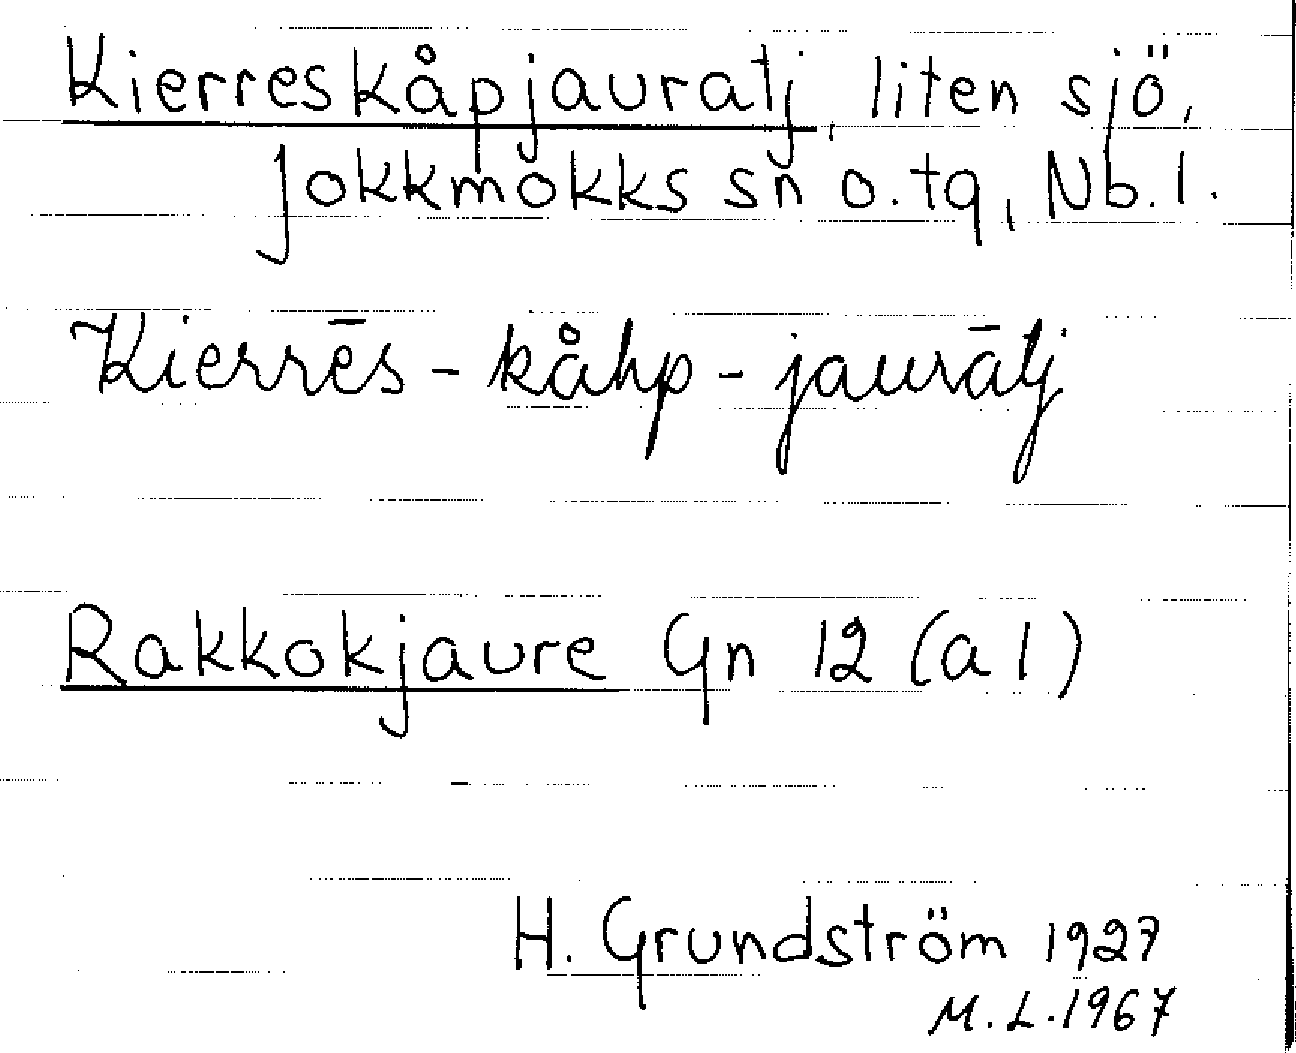 Kierreskåpjauratj, liten sjö,
Jokkmokks sn o. tg, Nb. l.
Kierrēs - kåhp - jaurātj
Rakkokjaure Gn 12 (a l)
H. Grundström 1927
M. L. 1967